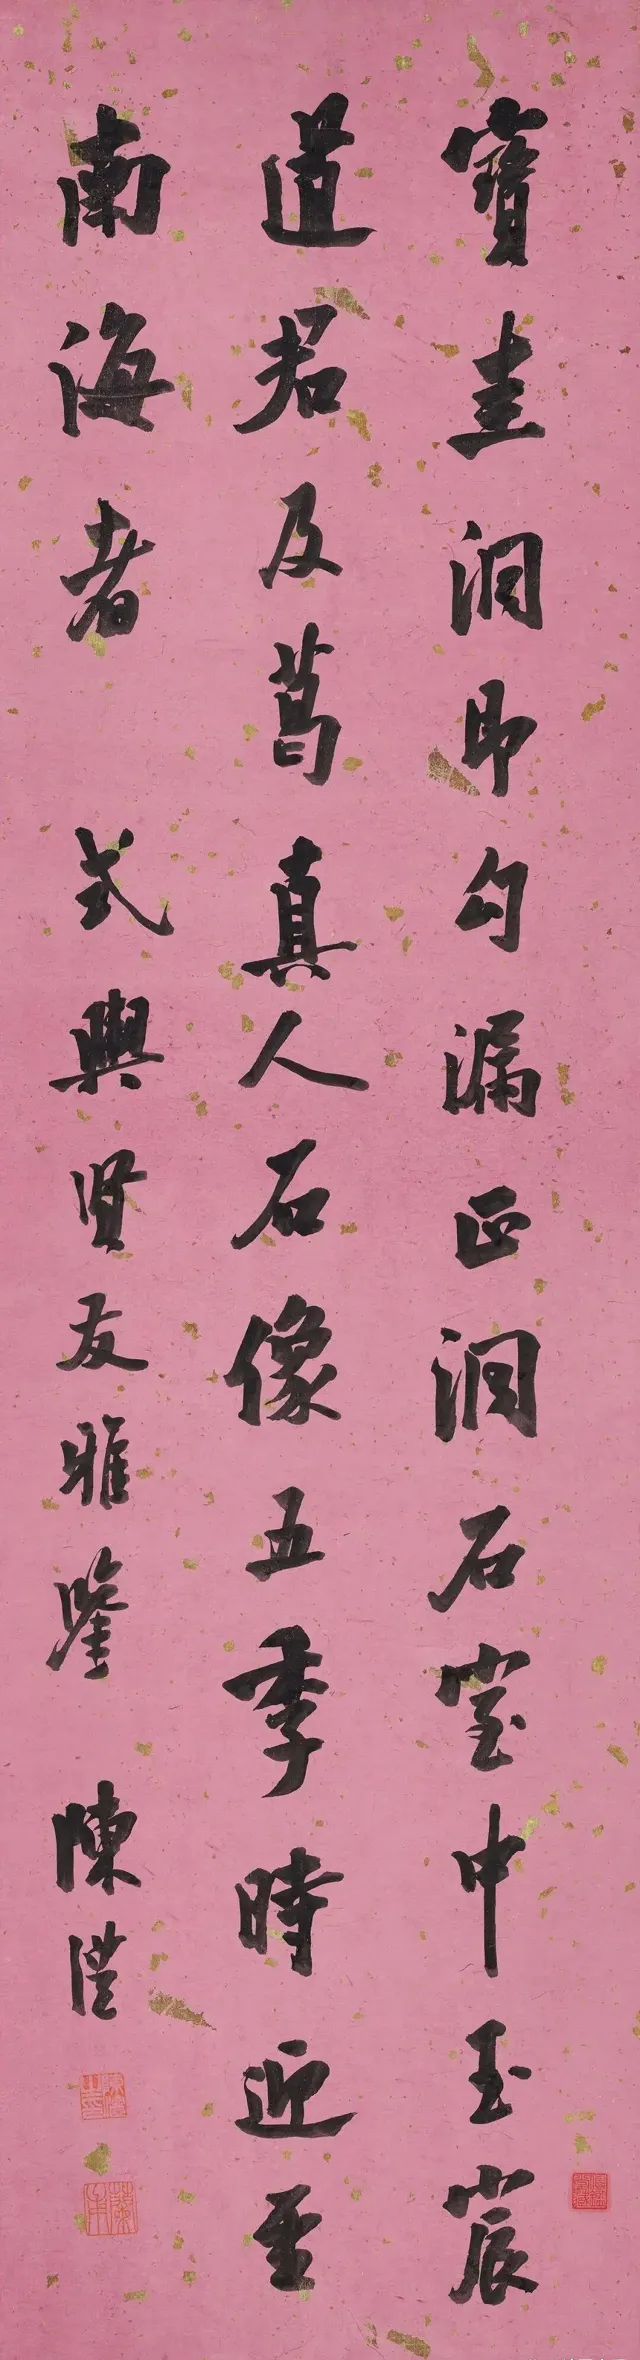 寶圭洞即勾漏正洞石室中玉宸
道君及葛真人石像五季時近至
南海者 式輿賢友雅鑒 陳澧
蘭甫